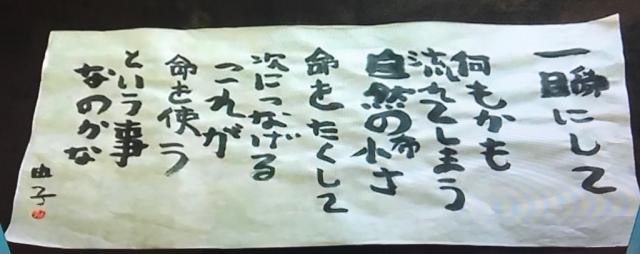 一瞬にして
何もかも
流れてしまう
自然の怖さ
命をたくして
次につなげる
これが
命を使う
という事
なのかな
由子